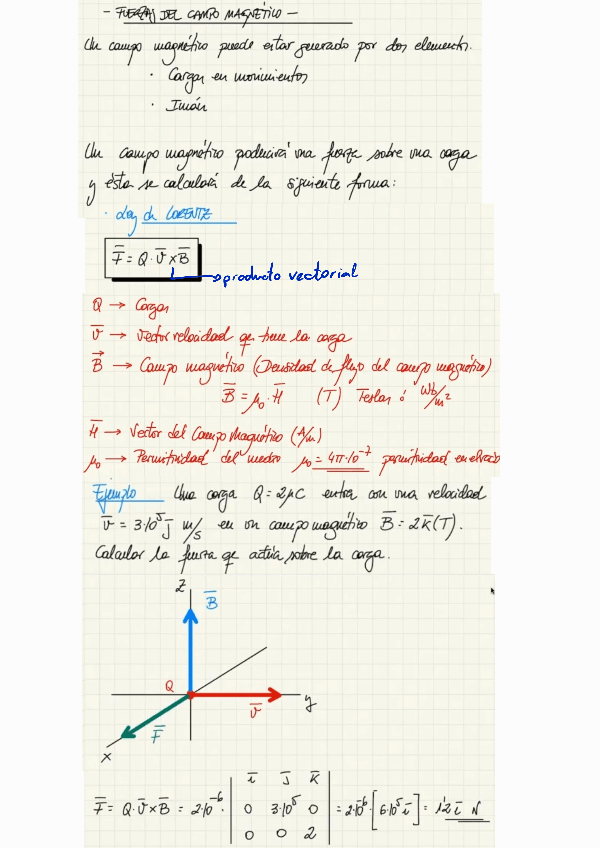 - FUERZAS DEL CAMPO MAGNÉTICO -
Un campo magnético puede estar generado por dos elementos.
· Cargas en movimientos
· Imán
Un campo magnético producirá una fuerza sobre una carga
y ésta se calculará de la siguiente forma:
· Ley de LORENTZ
F̅ = Q · v̅ × B̅
producto vectorial
Q → Cargas
v̅ → Vector velocidad q̅ tiene la carga
B⃗ → Campo magnético (Densidad de flujo del campo magnético)
B̅ = μ₀ · H̅ (T) Teslas ó Wb/m²
H̅ → Vector del Campo Magnético (A/m)
μ₀ → Permitividad del medio μ₀ = 4π·10⁻⁷ permitividad en el vacío
Ejemplo Una carga Q = 2μC entra con una velocidad
v̅ = 3·10⁵ j̅ m/s en un campo magnético B̅ = 2 k̅ (T).
Calcular la fuerza q̅ actúa sobre la carga.
Z
B̅
Q
v̅
y
F̅
x
i̅ j̅ k̅
F̅ = Q · v̅ × B̅ = 2·10⁻⁶ · | 0 3·10⁵ 0 | = 2·10⁻⁶ · [6·10⁵ i̅] = 1'2 i̅ N
0 0 2